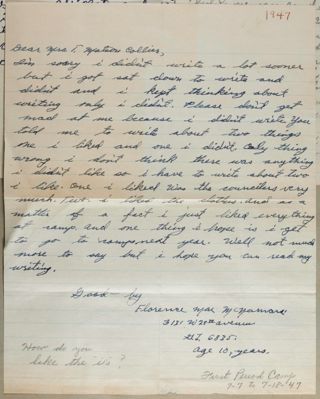 1947
Dear Mrs. T. Matson Collins,
I'm sorry i didn't write a lot sooner
but i got sat down to write and
didn't and i kept thinking about
writing only i didn't. Please don't get
mad at me because i didn't write. You
told me to write about two things
one i liked and one i didn't. Only thing
wrong i don't think there was anything
i didn't like so i have to write about two
i like. One i liked was the councellers very
much. Two. i liked the and as a
matter of a fact i just liked everything
at camp. and one thing i hope is i get
to go to camp next year. Well not much
more to say but i hope you can read my
writing.
Good-by
Florence Mae McNamara
3131 W 28th avenue
GL 6835.
age 10, years.
How do you
like the "i's"?
First Period Camp
7-7 to 7-18-47